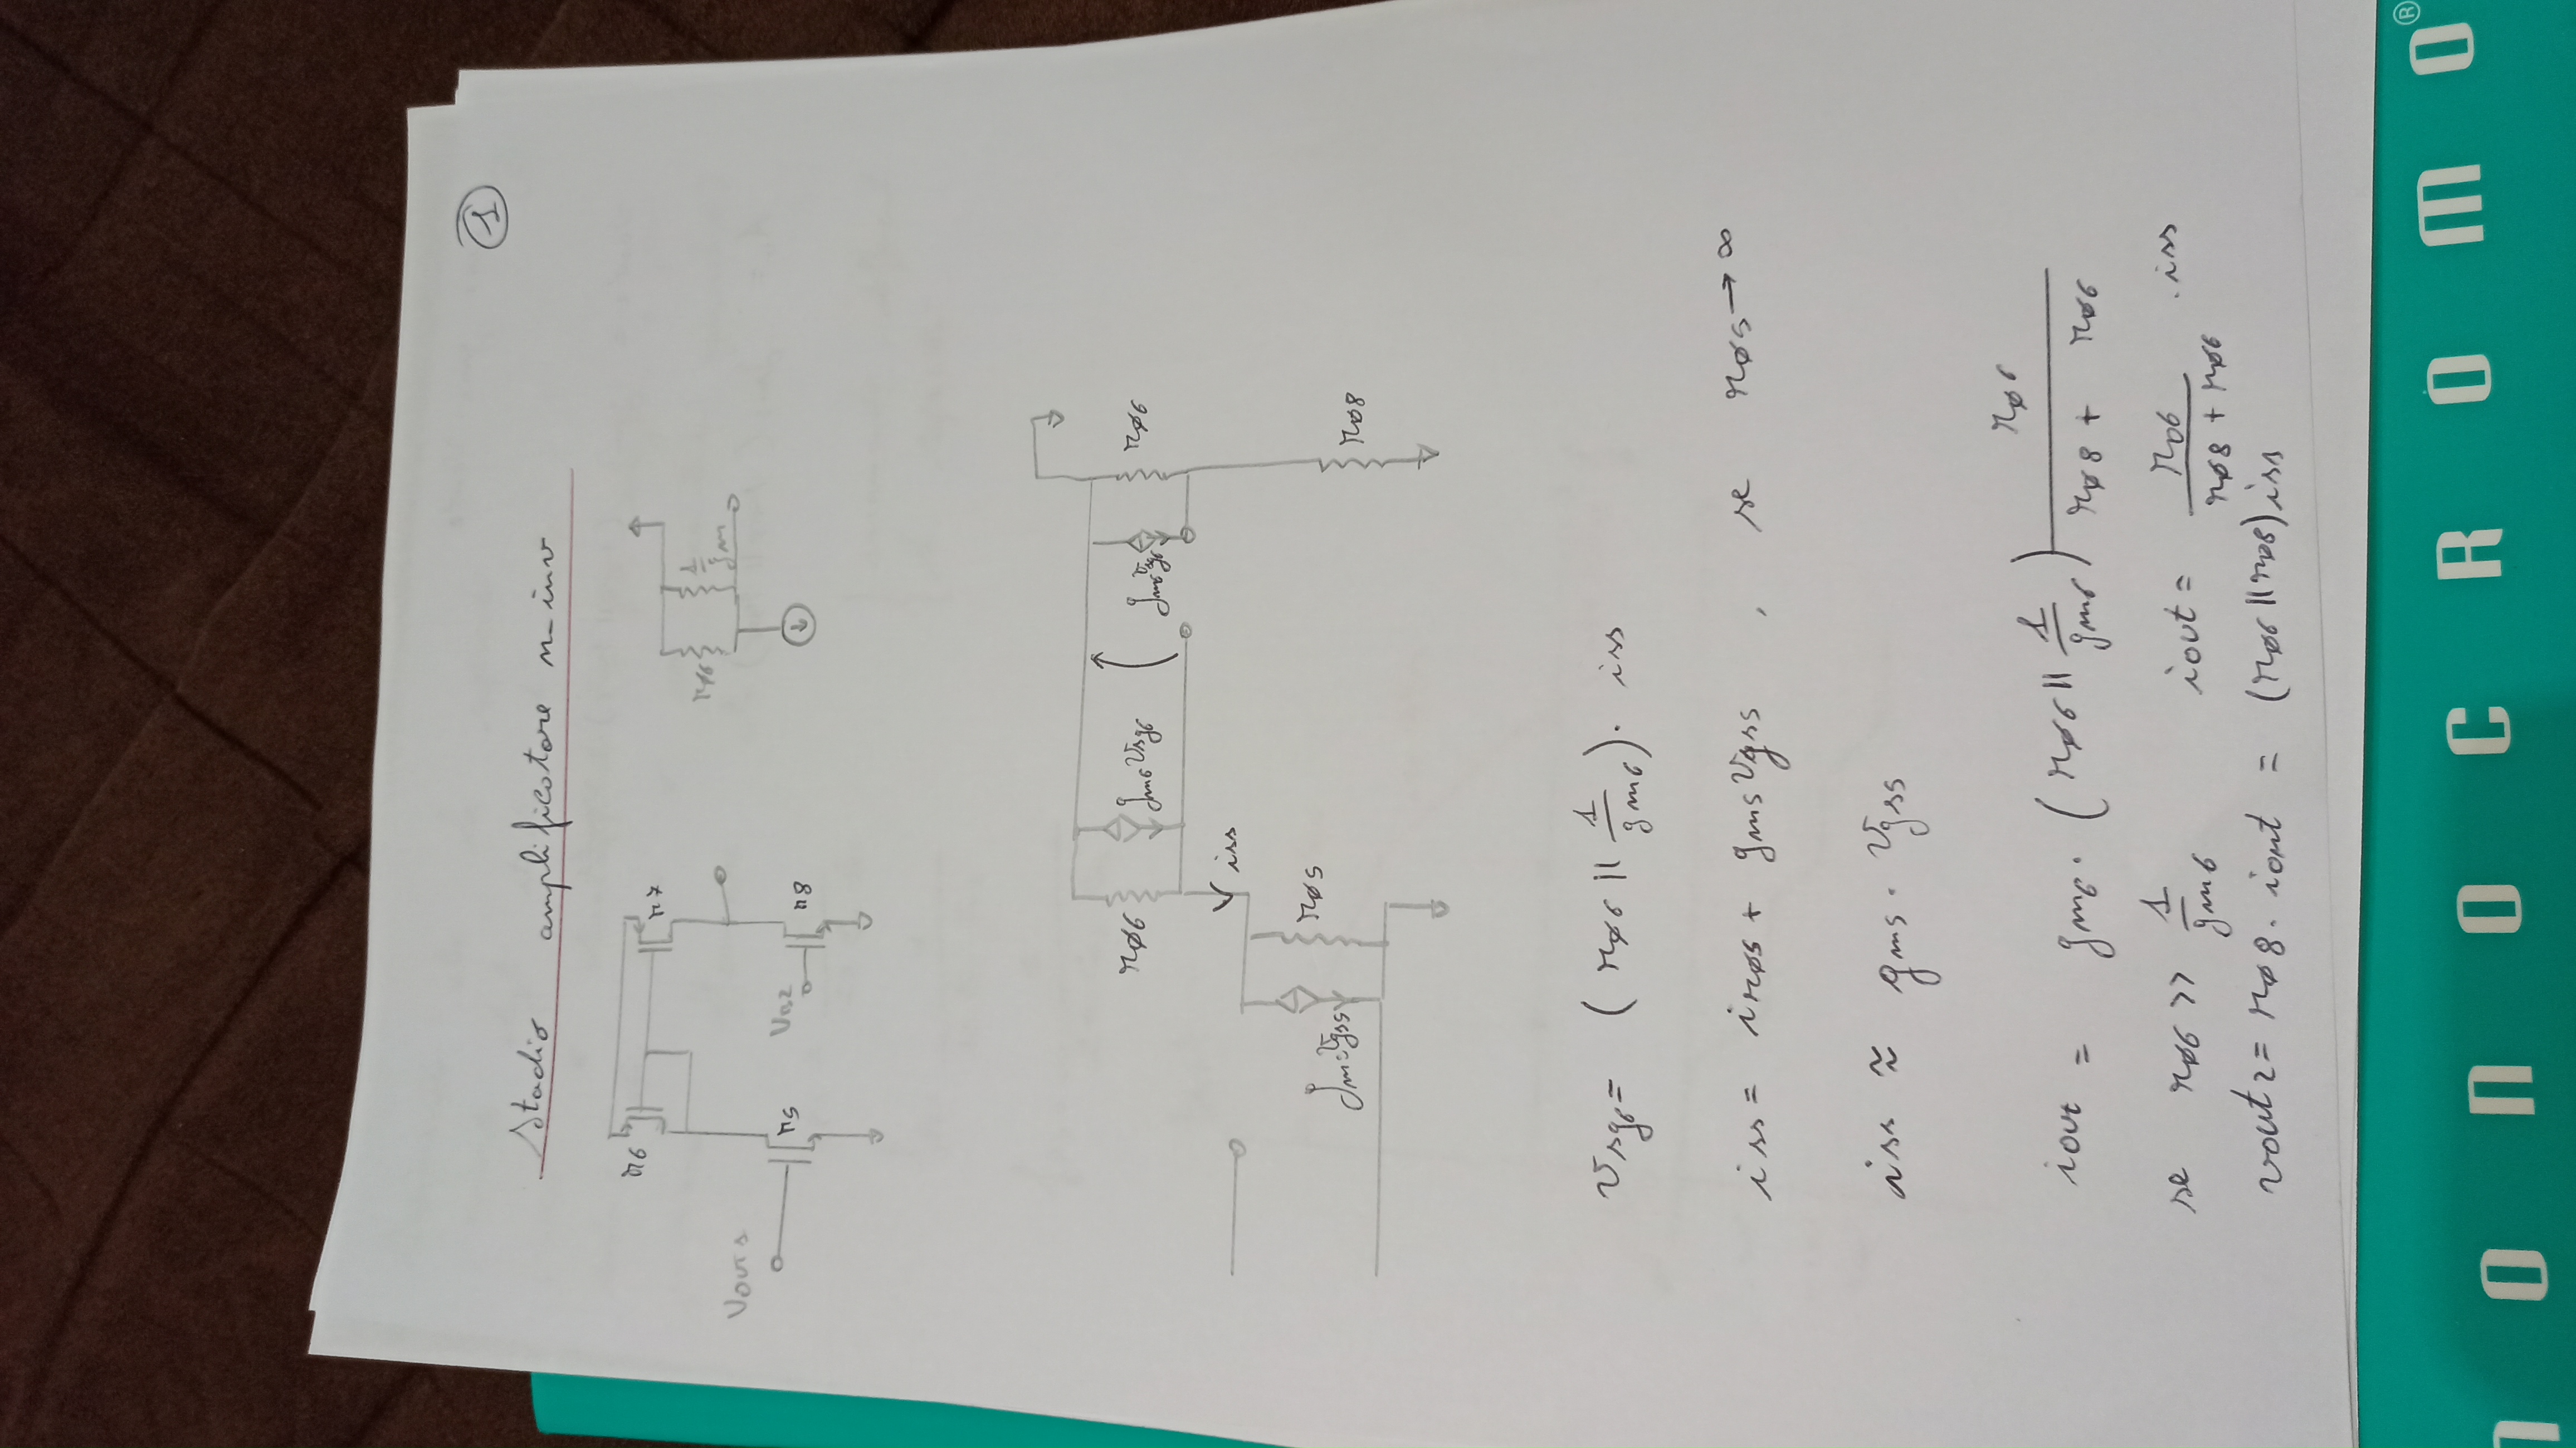 1
Stadio amplificatore n-inv
M6
M7
Vout1
M5
VB2
M8
rø6
1/gm
rø6
gm6 vsg6
gm6 vsg6
rø6
iss
gm5 vgs5
rø5
ro8
vsg6 = ( rø6 || 1/gm6 ) . iss
iss = irø5 + gm5 vgs5 , se rø5 → ∞
iss ≈ gm5 . vgs5
iout = gm6 . ( rø6 || 1/gm6 ) rø6/(rø8 + rø6)
se rø6 >> 1/gm6 iout = ro6/(rø8 + rø6) . iss
vout2 = rø8 . iout = (rø6 || rø8) iss
MONOCROMO®